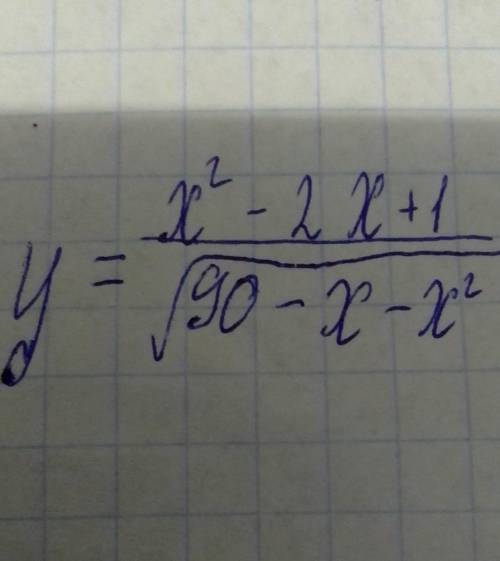 y = \frac{x^2 - 2x + 1}{\sqrt{90 - x - x^2}}